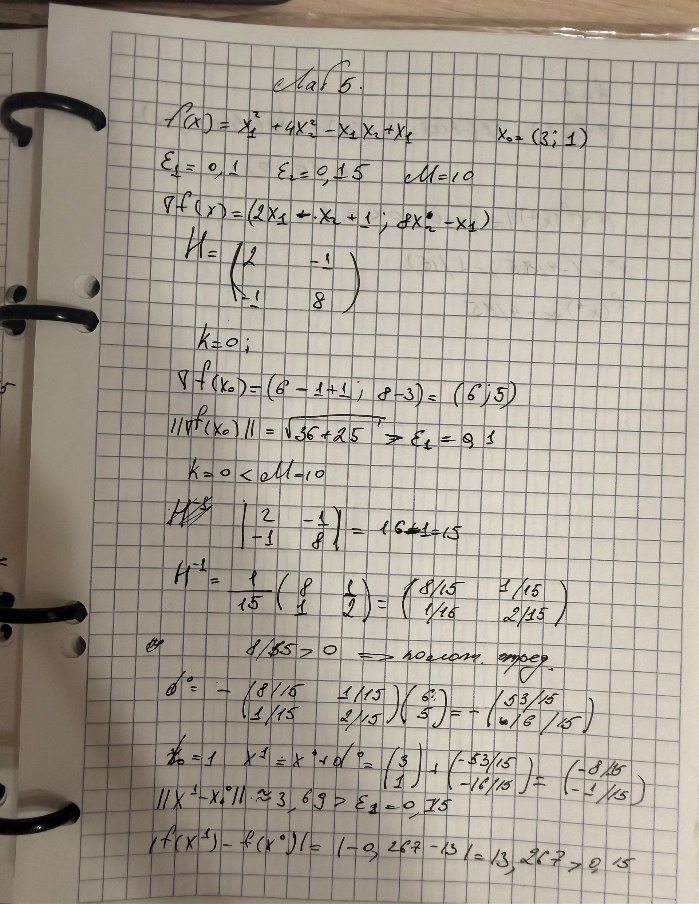 Лаб 5.
f(x) = x₁² + 4x₂² - x₁x₂ + x₁ x₀ = (3; 1)
ε₁ = 0,1 ε₂ = 0,15 M = 10
∇f(x) = (2x₁ - x₂ + 1; 8x₂ - x₁)
H = (2 -1
-1 8)
k=0;
∇f(x₀) = (6 - 1 + 1; 8-3) = (6; 5)
||∇f(x₀)|| = √(36+25) > ε₁ = 0,1
k=0 < M=10
|2 -1
-1 8| = 16-1=15
H⁻¹ = 1/15 (8 1
1 2) = (8/15 1/15
1/15 2/15)
8/15 > 0 => полож. опред.
d⁰ = - (8/15 1/15
1/15 2/15) (6
5) = - (53/15
16/15)
t₀ = 1 x¹ = x⁰ + d⁰ = (3
1) + (-53/15
-16/15) = (-8/15
-1/15)
||x¹ - x⁰|| ≈ 3,69 > ε₂ = 0,15
|f(x¹) - f(x⁰)| = |-0,267 - 13| = 13,267 > 0,15